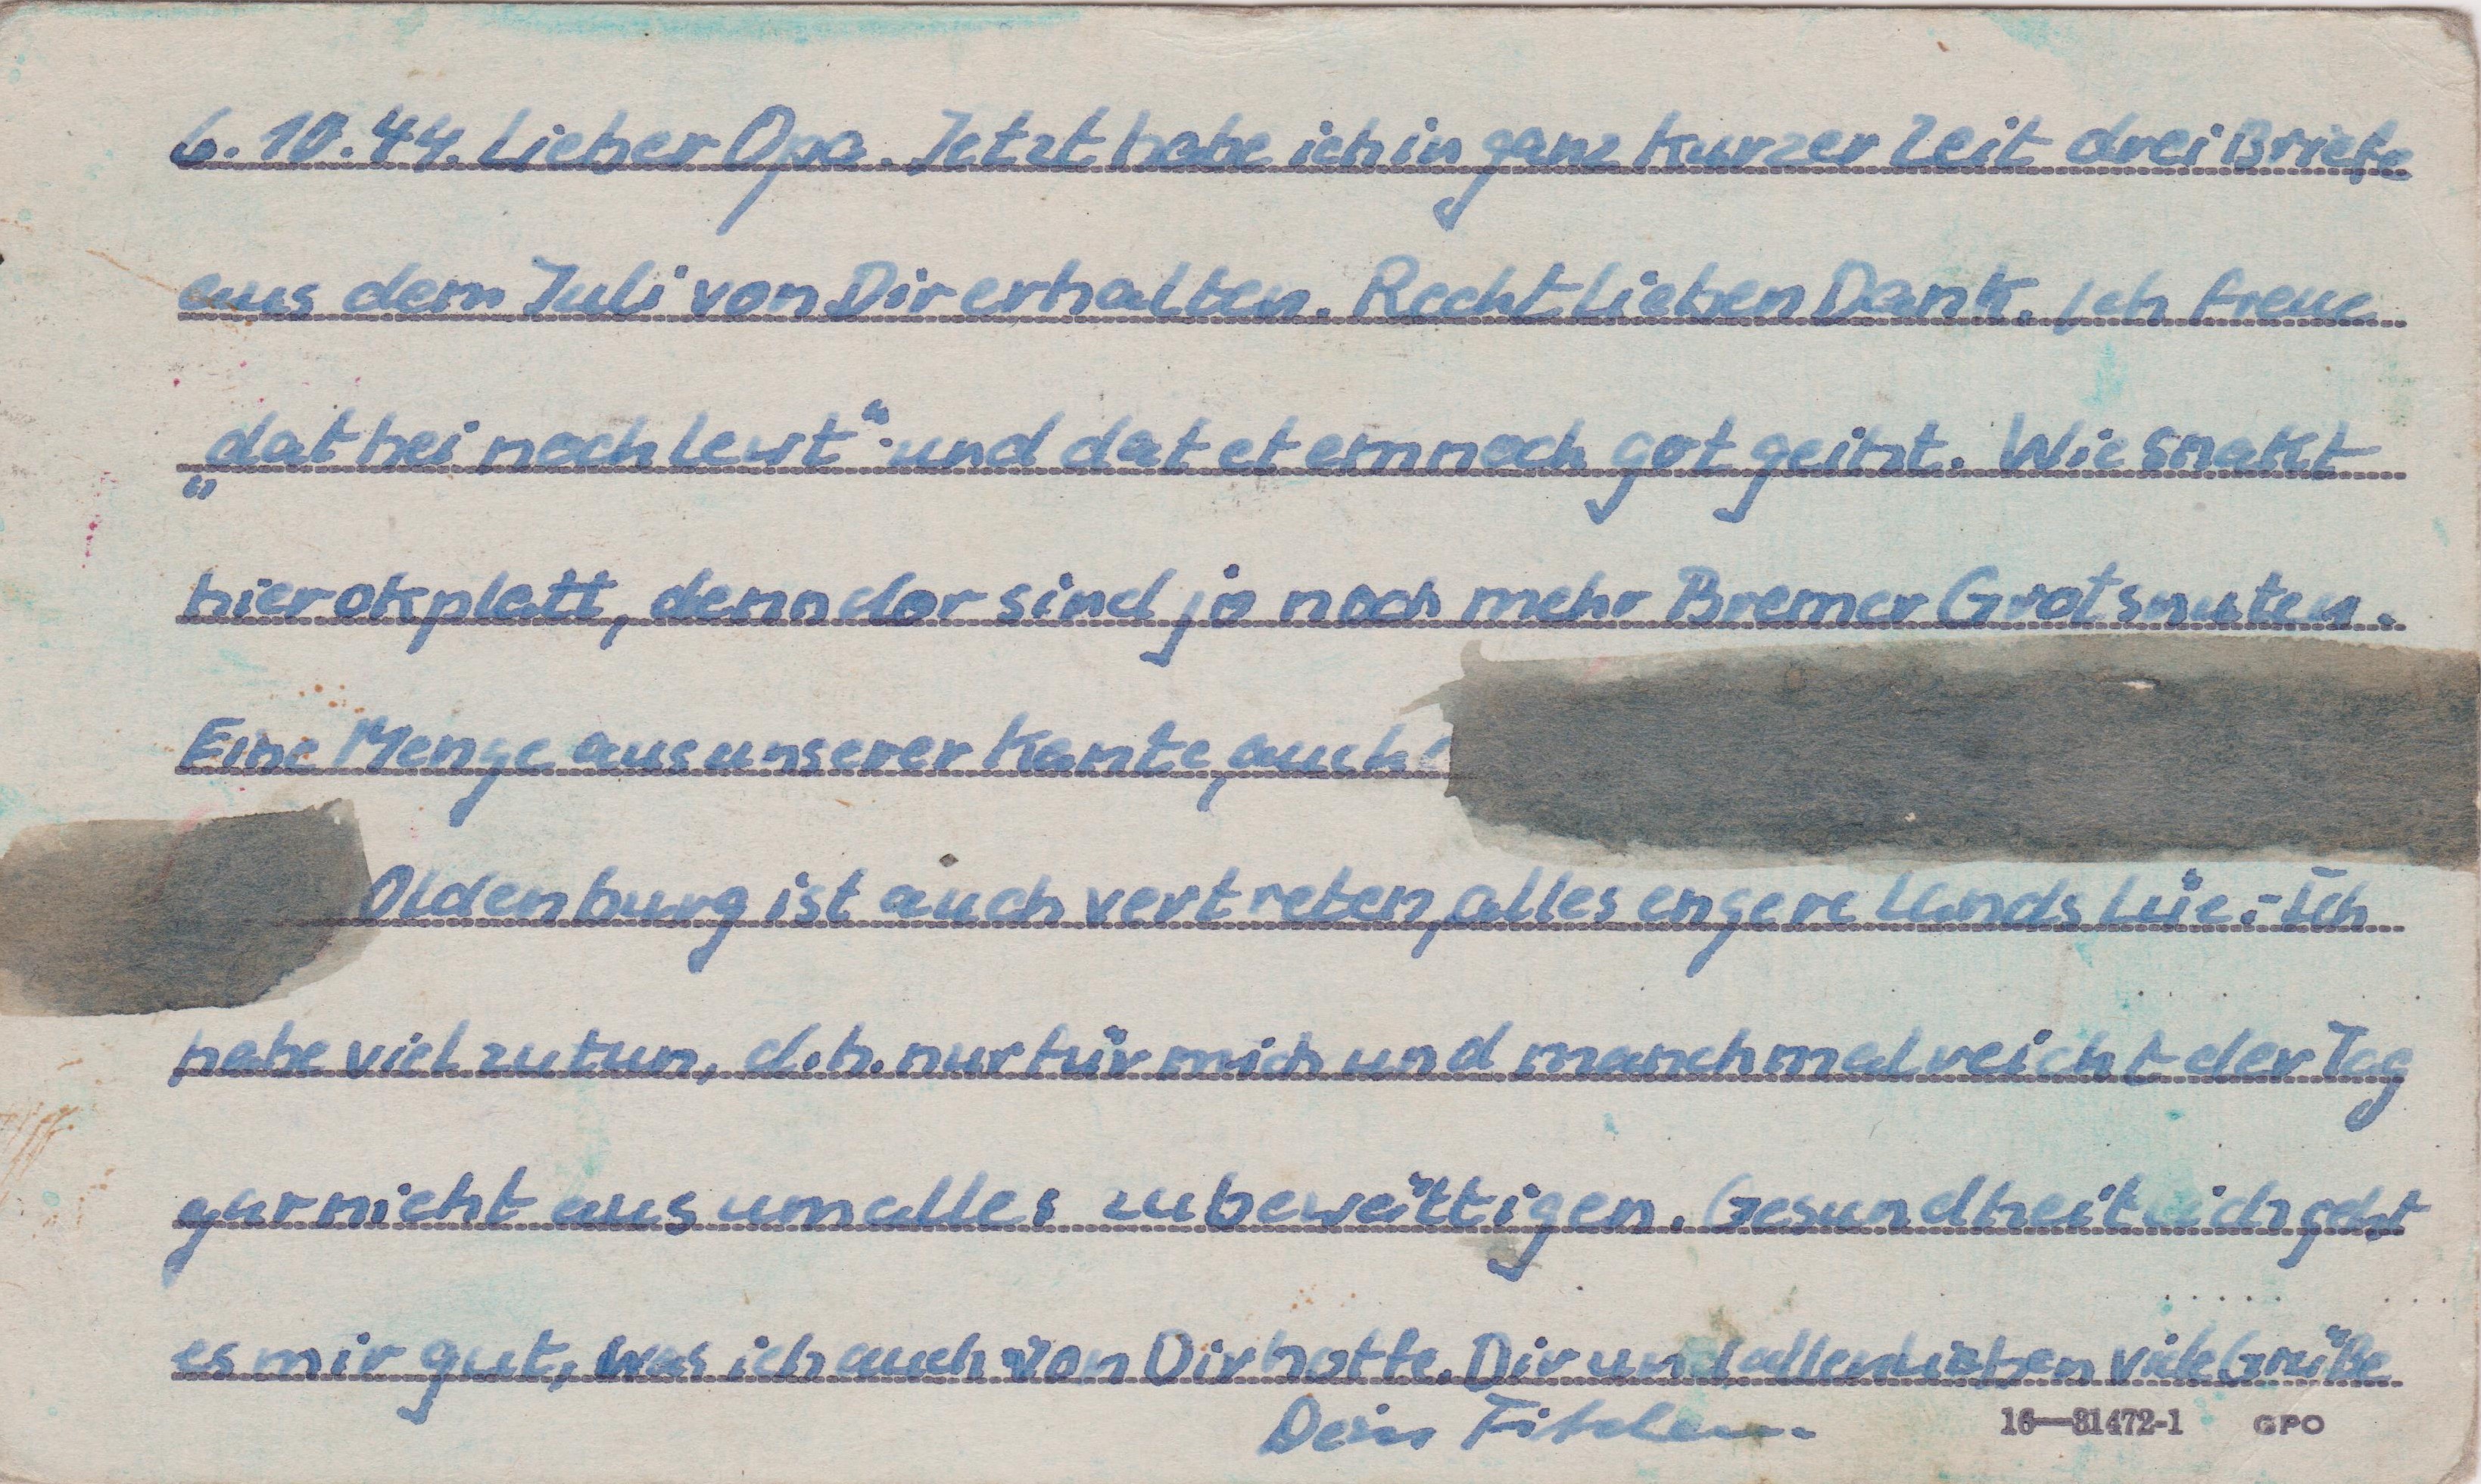 6.10.44. Lieber Opa. Jetzt habe ich in ganz kurzer Zeit drei Briefe
aus dem Juli von Dir erhalten. Recht lieben Dank. Ich freue
„dat hei noch lewt“ und dat et em noch got geiht. Wie snakt
hier ok platt, denn dor sind jo noch mehr Bremer Grotsnuten.
Eine Menge aus unserer Kante, auch
Oldenburg ist auch vertreten, alles engere Landslüe. - Ich
habe viel zu tun, d.h. nur für mich und manchmal reicht der Tag
garnicht aus um alles zu bewältigen. Gesundheitlich geht
es mir gut, was ich auch von Dir hoffe. Dir und allen lieben viele Grüße
Dein
16—31472-1 GPO